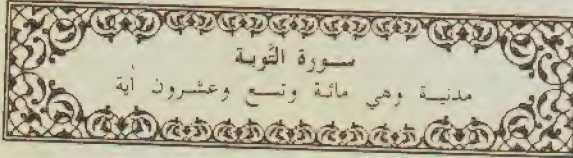 سورة التَّوبة
مدنية وهي مائة وتسع وعشرون أية